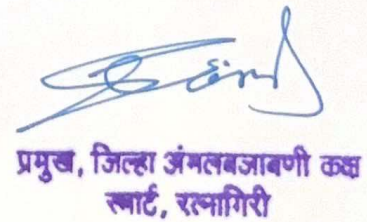 प्रमुख, जिल्हा अंमलबजाबणी कक्ष
स्मार्ट, रत्नागिरी